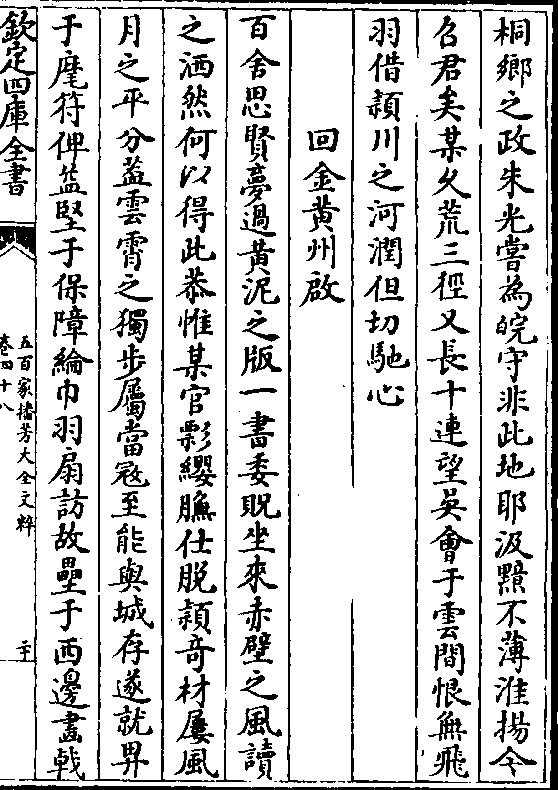 桐鄉之政朱光嘗為皖守非此地耶汲黯不薄淮揚今
召君矣某久荒三徑又長十連望吳會于雲間恨無飛
羽借潁川之河潤但切馳心
回金黃州啟
百舍思賢夢過黃泥之版一書委貺坐來赤壁之風讀
之洒然何以得此恭惟某官彯纓膴仕脫穎奇材屢風
月之平分葢雲霄之獨步屬當冦至能與城存遂就畀
于麾符俾益堅于保障綸巾羽扇訪故壘于西邊畫戟
欽定四庫全書
五百家播芳大全文粹
卷四十八
二十